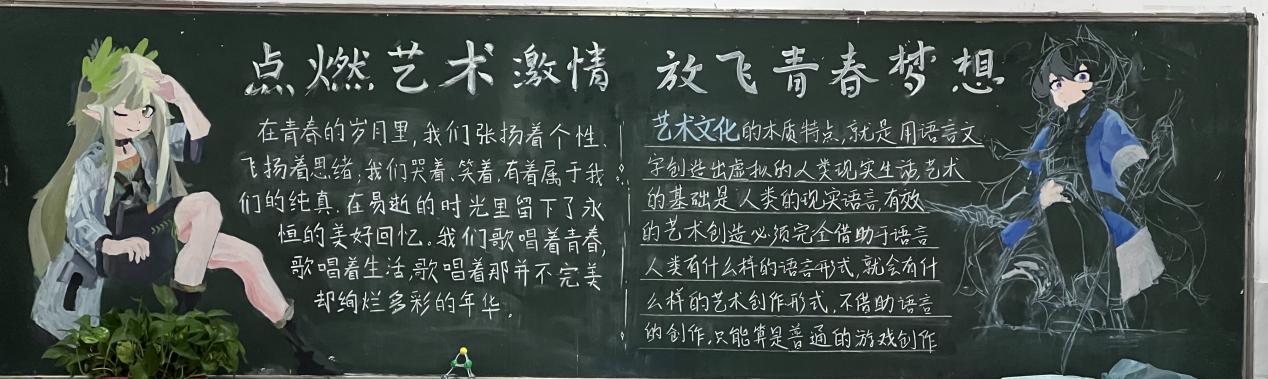 点燃艺术激情 放飞青春梦想
在青春的岁月里,我们张扬着个性、
飞扬着思绪;我们哭着、笑着,有着属于我
们的纯真,在易逝的时光里留下了永
恒的美好回忆。我们歌唱着青春,
歌唱着生活,歌唱着那并不完美
却绚烂多彩的年华。
艺术文化的本质特点,就是用语言文
字创造出虚拟的人类现实生活,艺术
的基础是人类的现实语言,有效
的艺术创造必须完全借助于语言
人类有什么样的语言形式,就会有什
么样的艺术创作形式,不借助语言
的创作,只能算是普通的游戏创作